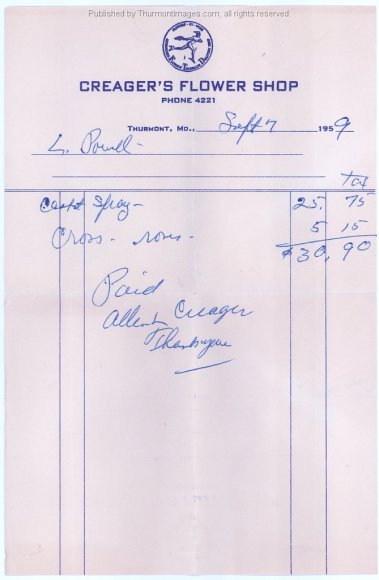 Published by Thurmontimages.com, all rights reserved.
CREAGER'S FLOWER SHOP
PHONE 4221
THURMONT, MD., Sept 7 1959
L. Powell -
Tax
Casket Spray - 25. 75
Cross - roses - 5 15
$30.90
Paid
Allen Creager
Thank you